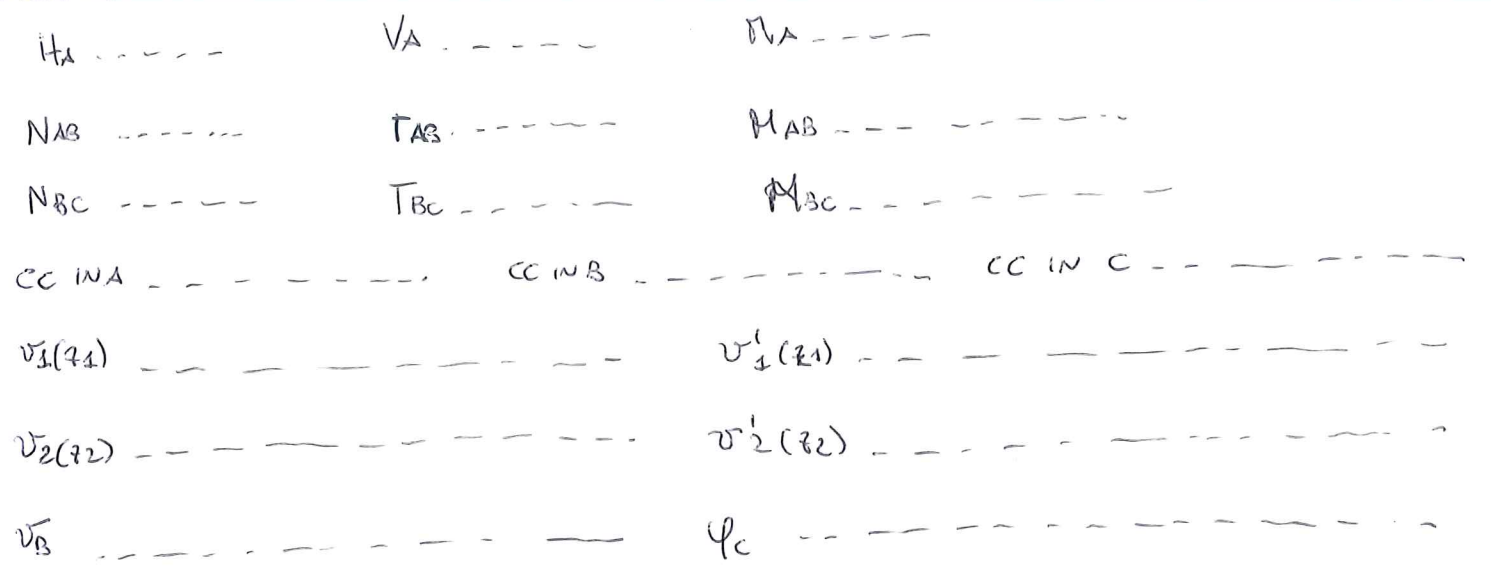 HA ------ VA ------ MA ------
NAB ------ TAB ------ MAB ------
NBC ------ TBC ------ MBC ------
CC IN A ------ CC IN B ------ CC IN C ------
v1(z1) ------ v'1(z1) ------
v2(z2) ------ v'2(z2) ------
vB ------ φc ------